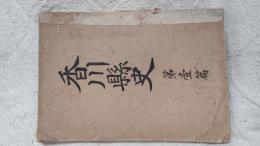 香川縣史
第壹篇